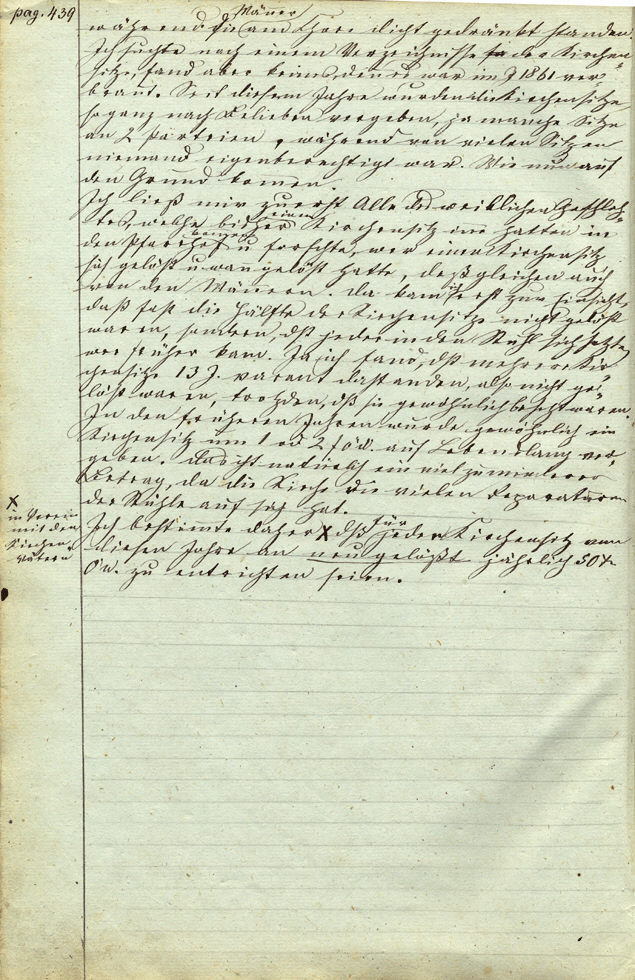 pag. 439
Männer
während die am Chore dicht gedränkt standen.
Ich suchte nach einem Verzeichnisse der Kirchen-
sitze, fand aber keines, den es war im J 1861 ver
brant. Seit diesem Jahre wurden die Kirchensitze
so ganz nach Belieben vergeben, ja manche Sitze
an 2 Parteien, während von vielen Sitzen
niemand eigenberechtigt war. Wie nun auf
den Grund komen.
Ich ließ mir zuerst Alle des weiblichen Geschlech-
tes, welche bisher einen Kirchensitz ine hatten in
den Pfarrhof komen u forschte, wer einen Kirchensitz
sich gelößt u wan gelößt hatte, deßgleichen auch
von den Männern. Da kam ich erst zur Einsicht,
daß fast die Hälfte der Kirchensitze nicht gelößt
waren, sondern, dß jeder in den Stuhl sich setzte,
wer früher kam. Ja ich fand, dß mehrere Kir-
chensitze 13 J. vacant dastanden, also nicht ge-
lößt waren, trotzden, dß sie gewöhnlich besetzt waren.
In den früheren Jahren wurde gewöhnlich ein
Kirchensitz um 1 od 2 f öW. auf Lebenslang ver-
geben. Das ist natürlich ein viel zu minderer
Betrag, da die Kirche die vielen Reparaturen
der Stühle auf sich hat.
Ich bestimte daher X dß für jeden Kirchensitz von
diesen Jahre an neu gelößt jährlich 50 x
öW. zu entrichten seien.
X
im Verein
mit den
Kirchen-
vätern